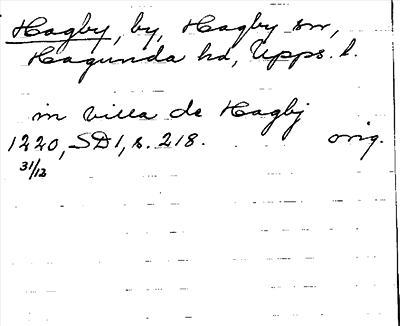 Hagby, by, Hagby sn,
Hagunda hd, Upps. l.
in villa de Hagbj
1220, SD1, s. 218. orig.
31/12